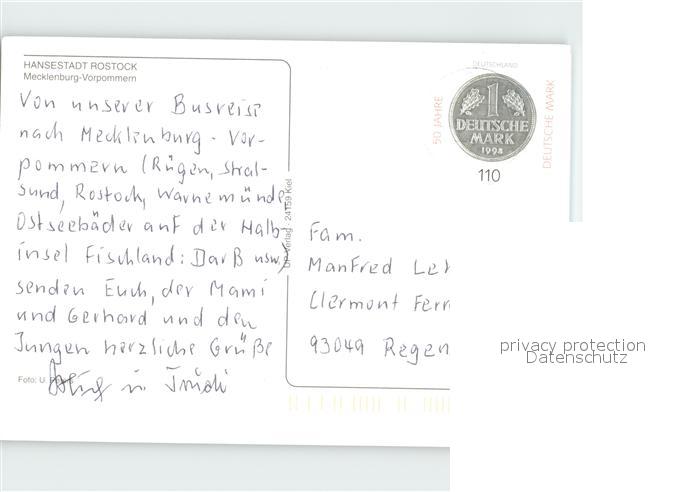 HANSESTADT ROSTOCK
Mecklenburg-Vorpommern
Von unserer Busreise
nach Mecklenburg-Vor-
pommern (Rügen, Stral-
sund, Rostock, Warnemünde,
Ostseebäder auf der Halb-
insel Fischland: Darß usw.)
senden Euch, der Mami
und Gerhard und den
Jungen herzliche Grüße
u. Trudi
Foto: U.
Verlag · 24159 Kiel
DEUTSCHLAND
50 JAHRE
DEUTSCHE MARK
1
DEUTSCHE
MARK
1994
110
Fam.
Manfred
Clermont Ferr
93049 Regen
privacy protection
Datenschutz